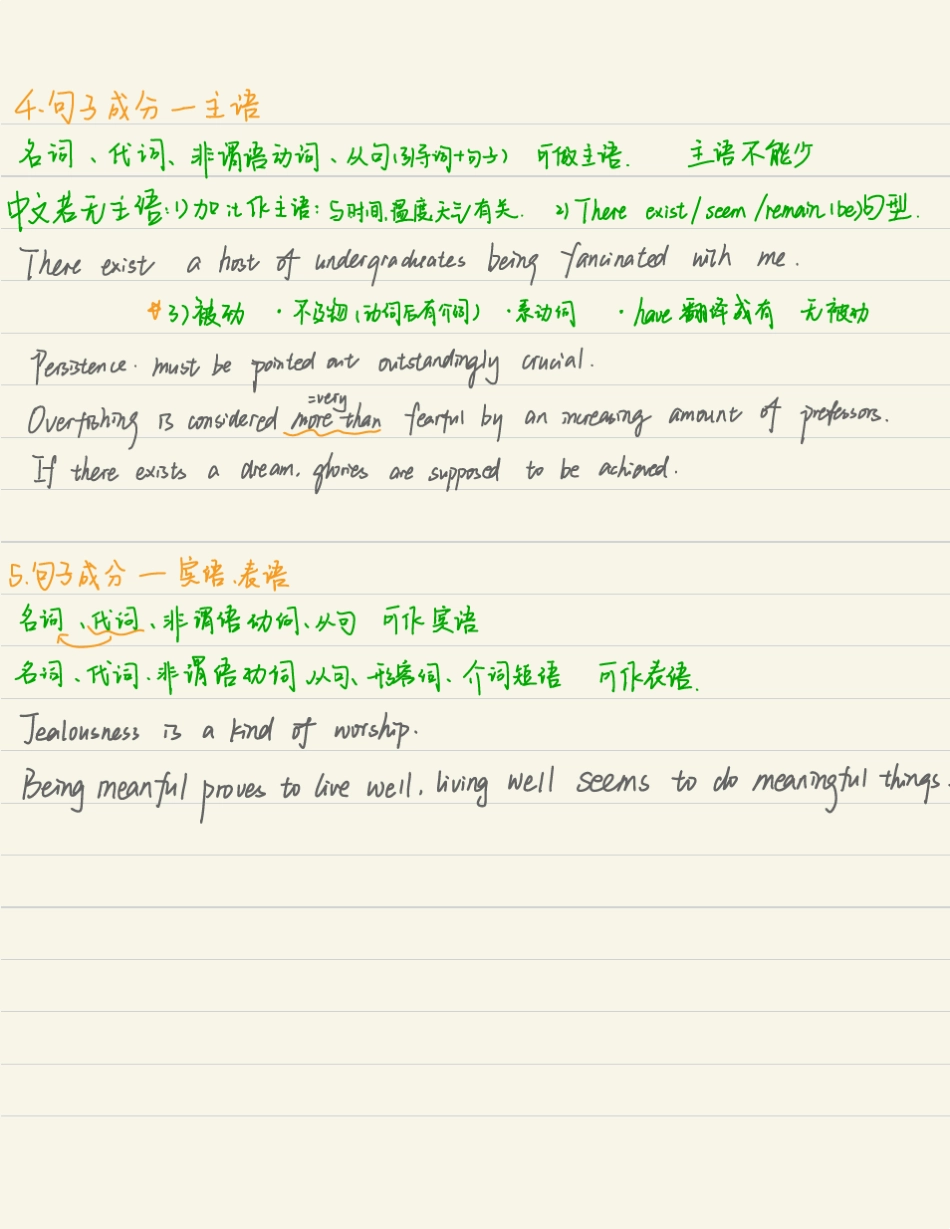 4.句子成分一主语
名词、代词、非谓语动词、从句(引导词+句子) 可做主语. 主语不能少
中文若无主语:1)加it作主语:与时间,温度,天气有关. 2)There exist/seem/remain(be)句型.
There exist a host of undergraduates being fancinated with me.
*3)被动 ·不及物(动词后有介词) ·系动词 ·have翻译成有 无被动
Persistence. must be pointed out outstandingly crucial.
=very
Overfishing is considered more than fearful by an increasing amount of professors.
If there exists a dream, glories are supposed to be achieved.
5.句子成分一宾语、表语
名词、代词、非谓语动词、从句 可作宾语
名词、代词、非谓语动词、从句、形容词、介词短语 可作表语.
Jealousness is a kind of worship.
Being meanful proves to live well, living well seems to do meaningful things.